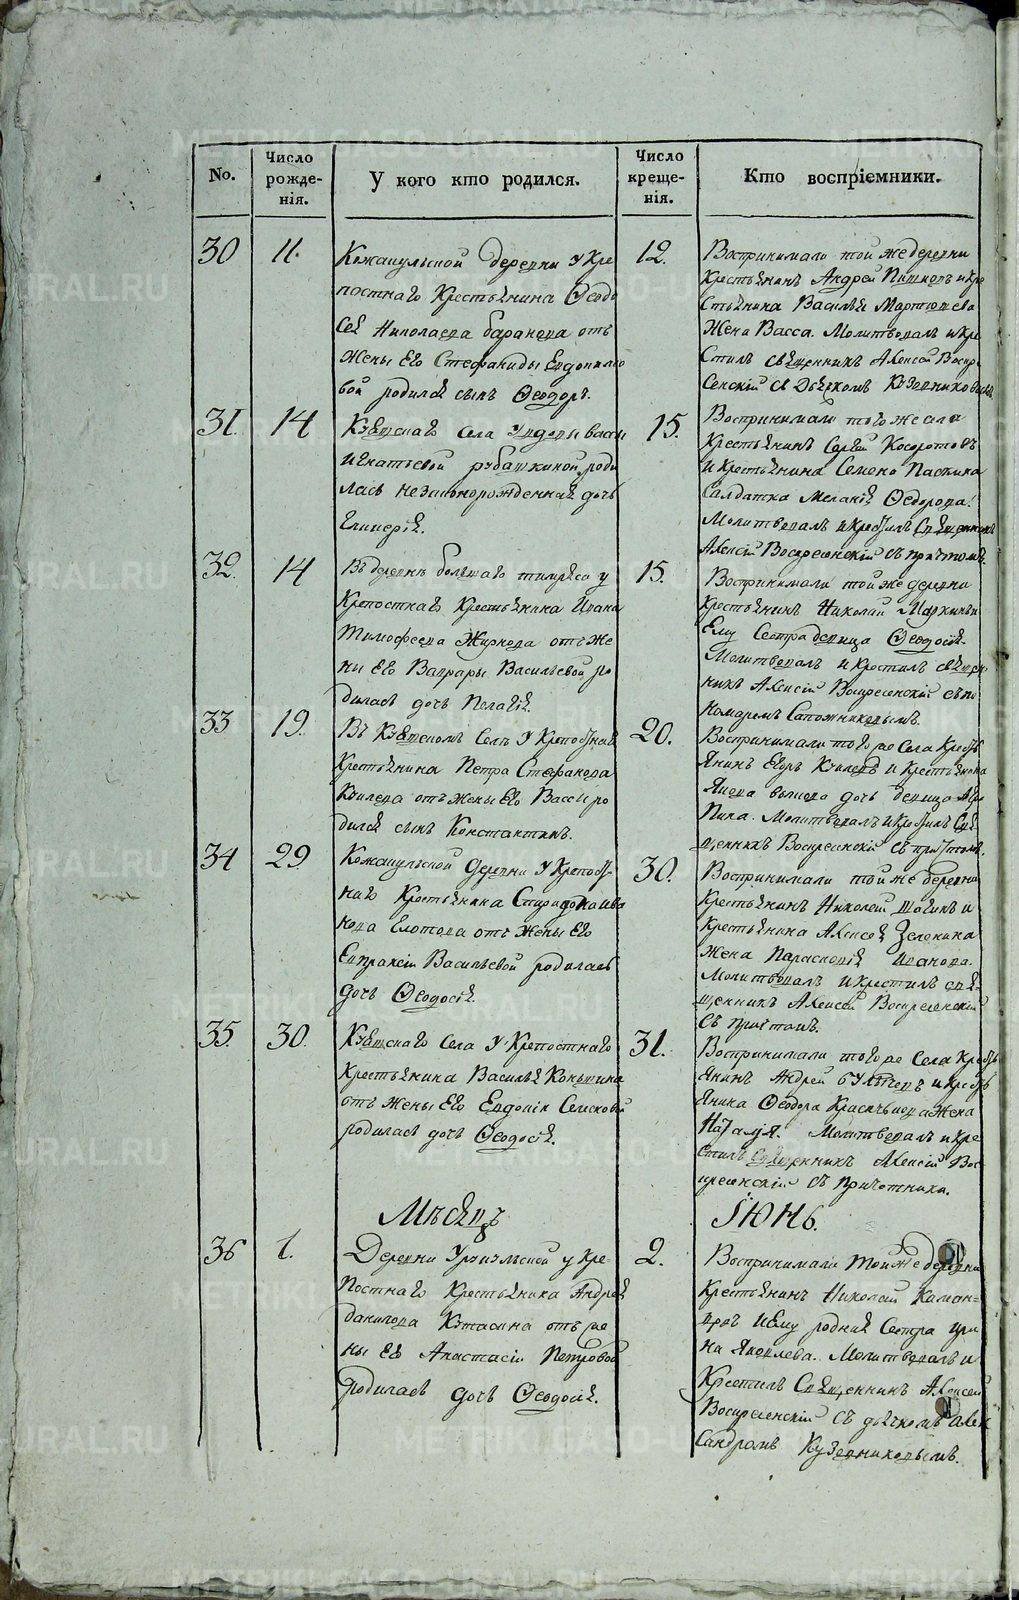 No.
Число рожденія.
У кого кто родился.
Число крещенія.
Кто воспріемники.
30
11.
Кожакульской деревни у кре
постнаго крестьянина Ѳеодо
сея Николаева баранова отъ
жены его Стефаниды Евдокимо
вой родился сынъ Ѳеодоръ.
12.
Воспринимали той же деревни
крестьянинъ Андрей
стьянина Василья Мартюшева
жена Васса. Молитвовалъ и кре
стилъ священникъ Алексей Воскре
сенскій съ Дьячкомъ
31.
14
села у вдовы вассы
игнатьевой рубашкиной роди
лась незаконорожденная дочь
Гликерія.
15.
Воспринимали того же села
крестьянинъ Сергей
и крестьянина Семена
салдатка Меланія Ѳедорова.
Молитвовалъ и крестилъ Священникъ
Алексій Воскресенскій съ причтомъ.
32.
14
Въ деревнѣ большаго у
крепостнаго крестьянина Ивана
Тимофеева Жирнова отъ же
ны его Варвары Васильевой ро
дилась дочь Пелагія.
15.
Воспринимали той же деревни
крестьянинъ Николай
ему сестра девица Ѳеодосія.
Молитвовалъ и крестилъ священ
никъ Алексій Воскресенскій съ по
номаремъ Сапожниковымъ.
33
19.
Въ селѣ у крепостнаго
крестьянина Петра Стефанова
отъ жены его Вассы ро
дился сынъ Константинъ.
20.
Воспринимали того же села кресть
янинъ Егоръ и крестьянина
дочь девица
Молитвовалъ и крестилъ Свя
щенникъ Воскресенскій съ причтомъ.
34
29
Кожакульской деревни у крепост
наго крестьянина Спиридона ива
нова отъ жены его
Евпраксіи Васильевой родилась
дочь Ѳеодосія.
30.
Воспринимали той же деревни
крестьянинъ Николай и
крестьянина Алексея Зеленина
жена Парасковія Иванова.
Молитвовалъ и крестилъ свя
щенникъ Алексей Воскресенскій
съ причтомъ.
35
30.
села у крепостнаго
крестьянина Василья Конькина
отъ жены его Евдокіи
родилась дочь Ѳеодосія.
31.
Воспринимали того же села кресть
янинъ Андрей и кресть
янина Ѳеодора жена
Наталія. Молитвовалъ и кре
стилъ Священникъ Алексій Вос
кресенскій съ Причетники.
Мѣсяцъ
Іюнь.
36
1.
Деревни у кре
постнаго крестьянина Андрея
данилова отъ же
ны его Анастасіи Петровой
родилась дочь Ѳеодосія.
2.
Воспринимали той же деревни
крестьянинъ Николай
и ему родная сестра ири
на Яковлева. Молитвовалъ и
крестилъ Священникъ Алексей
Воскресенскій съ дьячкомъ алек
сандромъ Кузовниковымъ.
METRIKI.GASO-URAL.RU